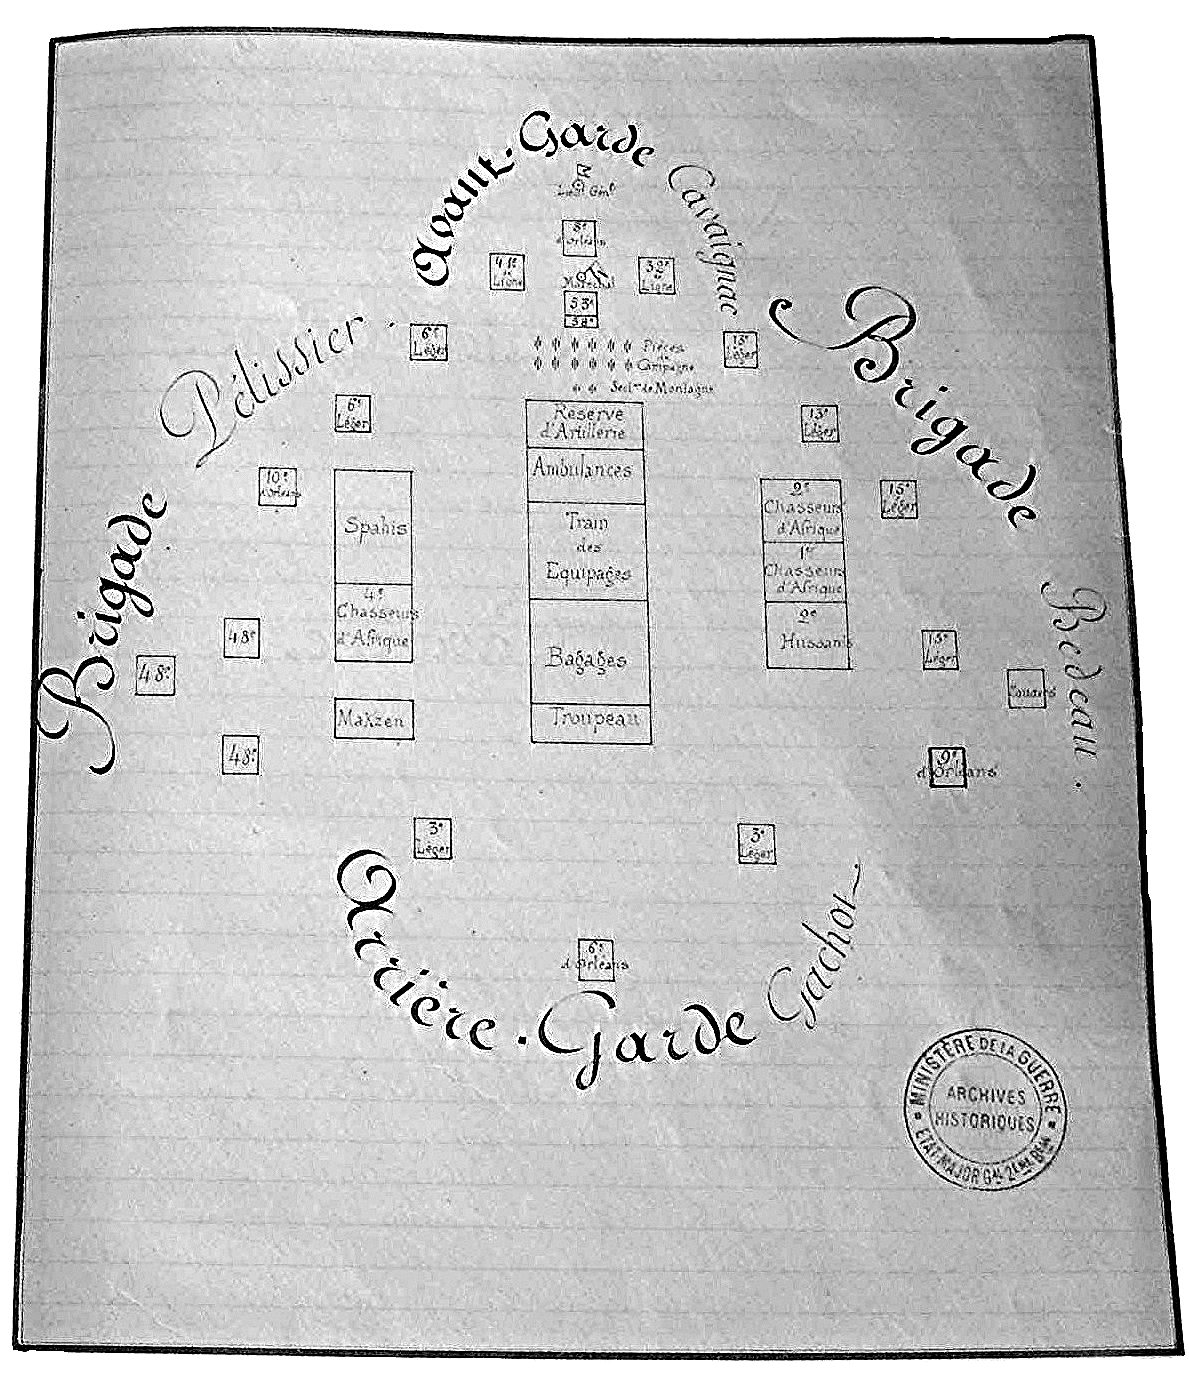 Avant-Garde Cavaignac
Lieut Génl
8e
d'Orléans
41e
de
Ligne
Maréchal
32e
de
Ligne
53e
58e
6e
Léger
Pièces
de
Campagne
Sectn de Montagne
13e
Léger
Brigade Pélissier.
Brigade Bedeau.
6e
Léger
10e
d'Orléans
48e
48e
48e
Spahis
4e
Chasseurs
d'Afrique
Makzen
Réserve
d'Artillerie
Ambulances
Train
des
Equipages
Bagages
Troupeau
2e
Chasseurs
d'Afrique
1er
Chasseurs
d'Afrique
2e
Hussards
13e
Léger
15e
Léger
15e
Léger
Zouaves
9e
d'Orléans
3e
Léger
3e
Léger
6e
d'Orléans
Arrière-Garde Gachot
MINISTÈRE DE LA GUERRE
ARCHIVES
HISTORIQUES
ETAT-MAJOR GAL 2EME BEAU